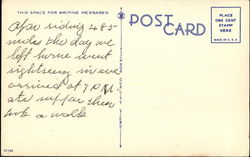 THIS SPACE FOR WRITING MESSAGES
POST CARD
PLACE
ONE CENT
STAMP
HERE
MADE IN U.S.A.
After riding 480
miles the day we
left home went
sightseeing
arrived at 7 P.M.
ate supper then
took a walk